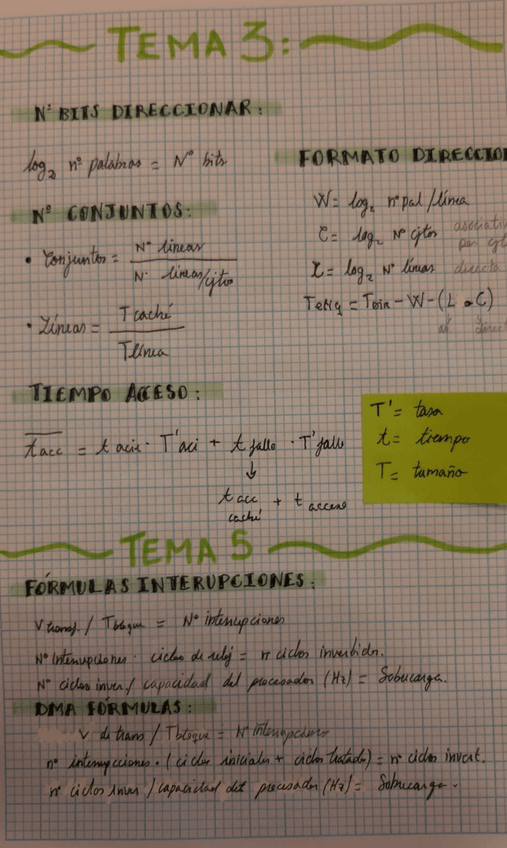 TEMA 3:
Nº BITS DIRECCIONAR:
log₂ nº palabras = Nº bits
FORMATO DIRECCION
W = log₂ nº pal/línea
C = log₂ Nº cjtos asociativa
por cjto
L = log₂ Nº líneas directa
Tetiq = Tdir - W - (L o C)
Nº CONJUNTOS:
• Conjuntos = Nº líneas
Nº líneas/cjtos
• Líneas = T caché
T línea
TIEMPO ACCESO:
t acc = t acie · T'aci + t fallo · T'fallo
↓
t acc + t acceso
caché
T' = tasa
t = tiempo
T = tamaño
TEMA 5
FÓRMULAS INTERUPCIONES:
V transf. / Tbloque = Nº interrupciones
Nº Interrupciones · ciclos de reloj = nº ciclos invertidos.
Nº ciclos inver / capacidad del procesador (Hz) = Sobrecarga.
DMA FÓRMULAS:
V de trans / Tbloque = Nº interrupciones
nº interrupciones · (ciclos iniciales + ciclos tratado) = nº ciclos invert.
nº ciclos inver / capacidad del procesador (Hz) = Sobrecarga.